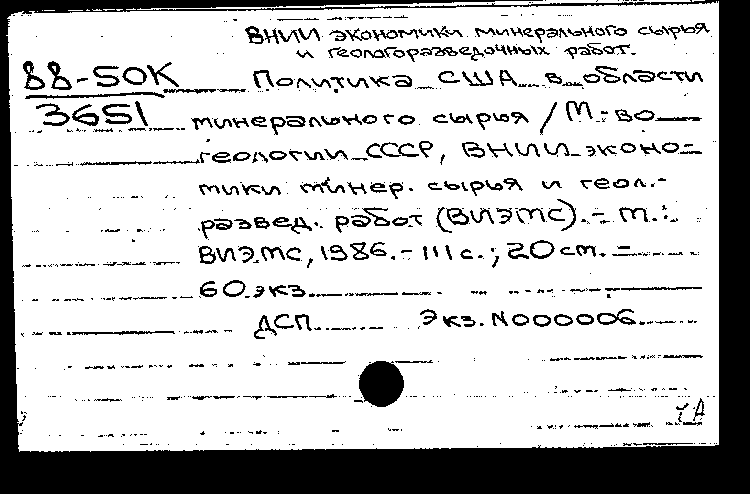 ВНИИ экономики минерального сырья
и геологоразведочных работ.
88-5OK
3651
Политика США в области
минерального сырья / М-во
геологии СССР, ВНИИ эконо-
мики минер. сырья и геол.-
развед. работ (ВИЭМС). - М.:
ВИЭМС, 1986. - 111 с.; 20 см. -
60 экз.
ДСП Экз. N000006